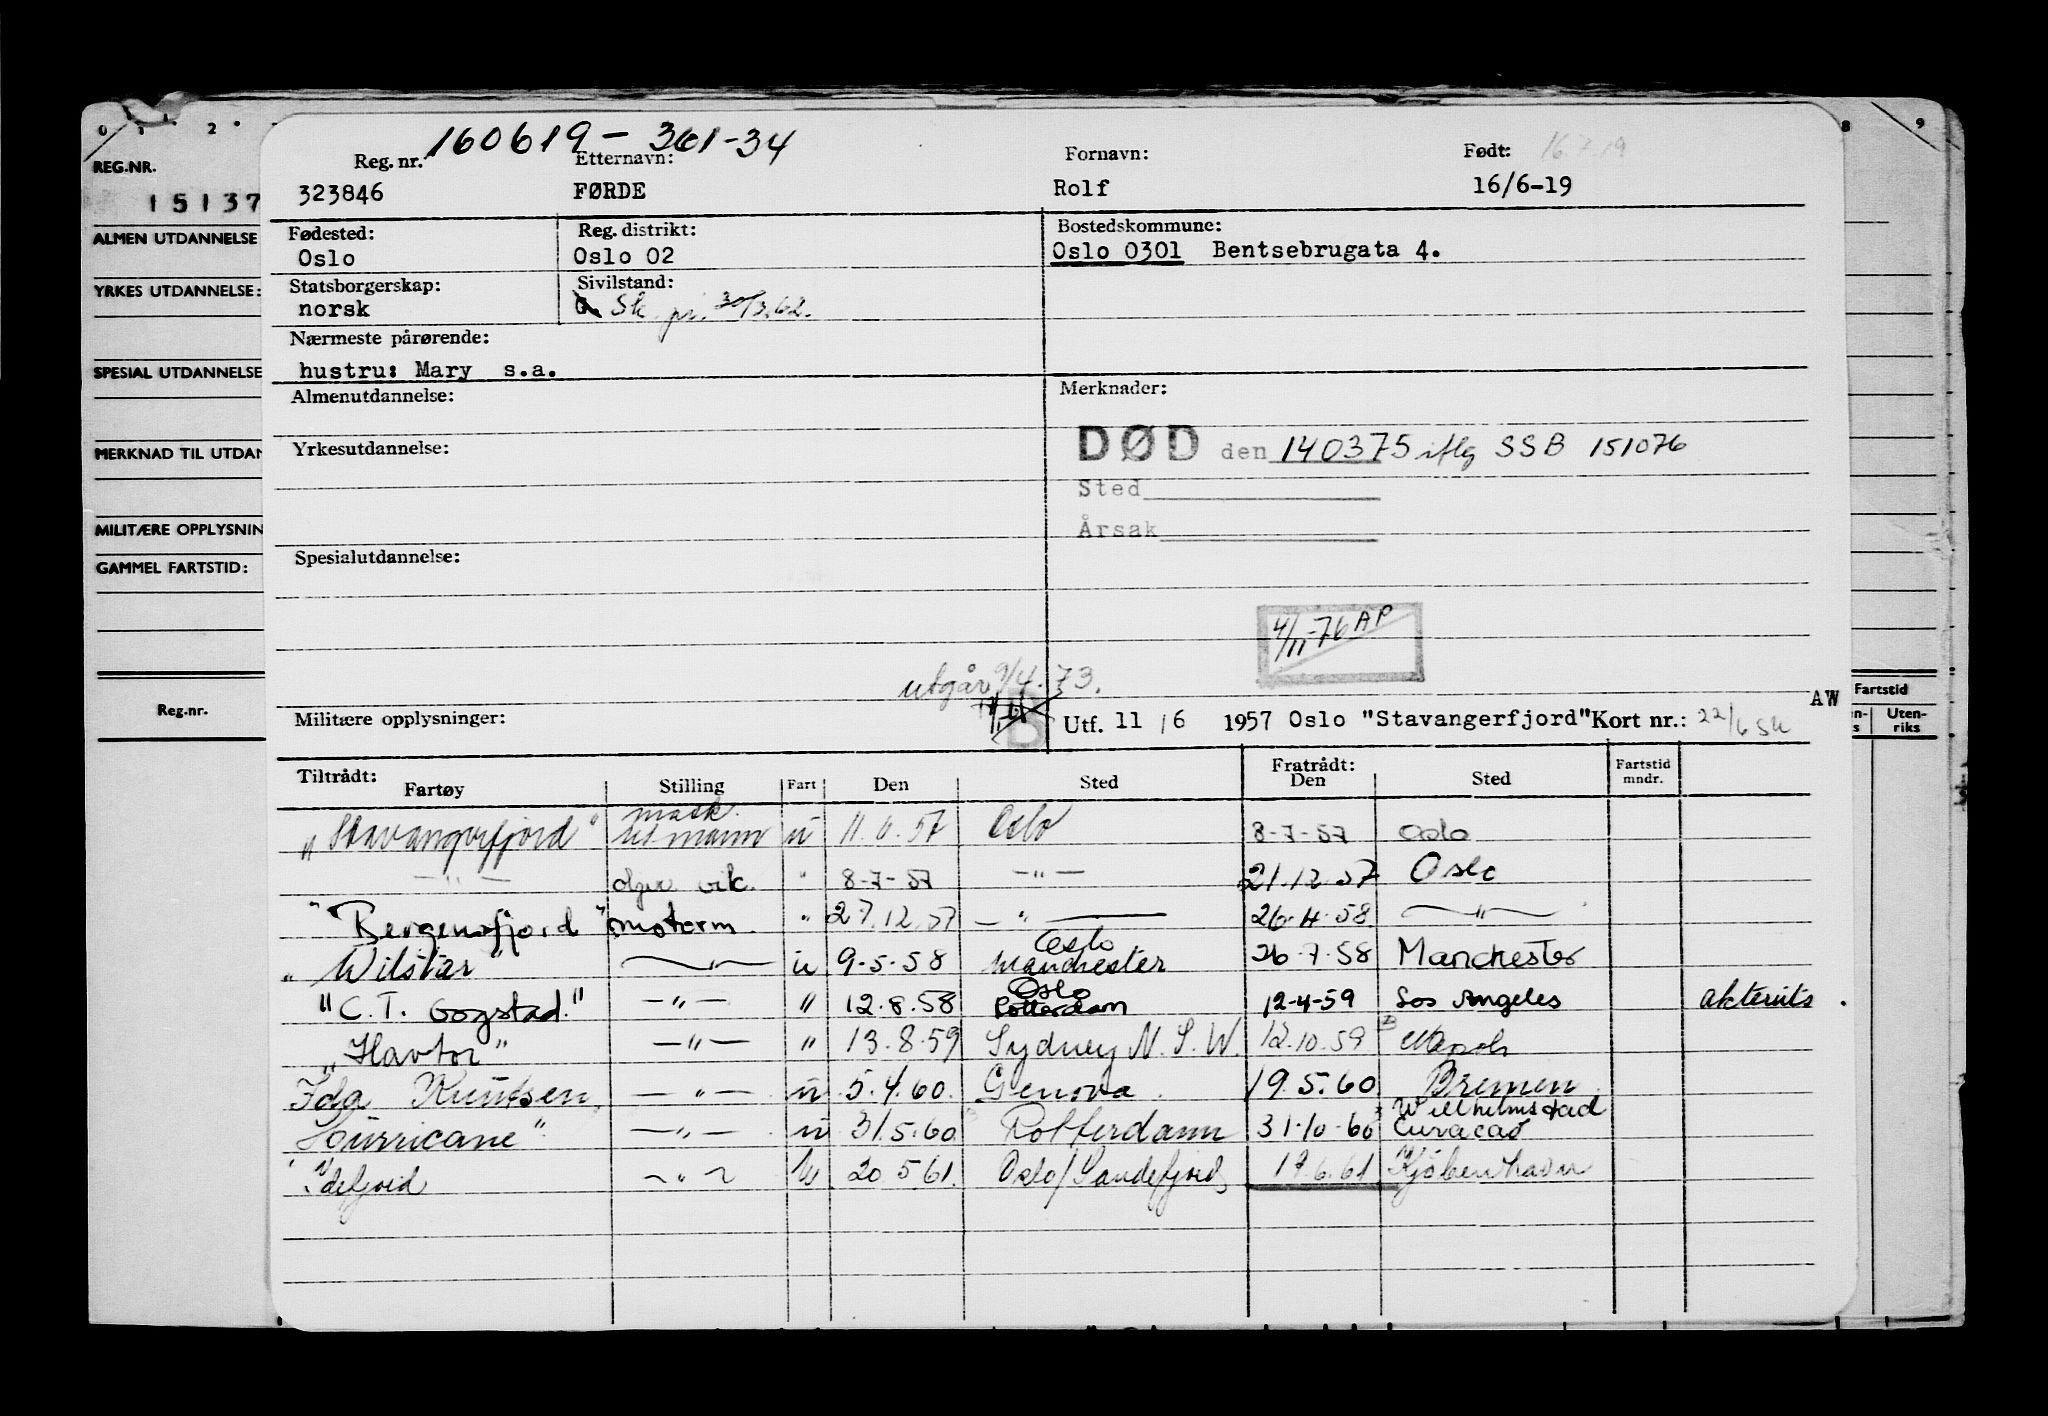 0 1 2 8 9
160619-361-34
REG.NR.
15137
ALMEN UTDANNELSE
YRKES UTDANNELSE:
SPESIAL UTDANNELSE
MERKNAD TIL UTDAN
MILITÆRE OPPLYSNIN
GAMMEL FARTSTID:
Reg.nr.
Reg. nr. Etternavn: Fornavn: Født: 16.7.19
323846 FØRDE Rolf 16/6-19
Fødested: Reg. distrikt: Bostedskommune:
Oslo Oslo 02 Oslo 0301 Bentsebrugata 4.
Statsborgerskap: Sivilstand:
norsk Sk. pr. 30/3.62.
Nærmeste pårørende:
hustru: Mary s.a.
Almenutdannelse: Merknader:
Yrkesutdannelse: DØD den 140375 iflg SSB 151076
Sted
Årsak
Spesialutdannelse:
4/11-76 AP
utgår 9/4.73.
Militære opplysninger: Utf. 11/6 1957 Oslo "Stavangerfjord" Kort nr.: 22/6 SK AW
Fartstid
Uten-
riks
Tiltrådt: Fratrådt: Fartstid
Fartøy Stilling Fart Den Sted Den Sted mndr.
"Stavangerfjord" mask. mann u 11.6.57 Oslo 8-7-57 Oslo
— " — vik. " 8-7-57 — " — 21.12.57 Oslo
"Bergensfjord" motorm. " 27.12.57 — " — 26.4.58 — " —
"Wilstar" — " — u 9-5-58 Oslo Manchester 26.7.58 Manchester
"C.T. Gogstad." — " — " 12.8.58 Oslo Rotterdam 12-4-59 Los Angeles akterut
"Havtor" — " — " 13.8.59 Sydney N.S.W. 12.10.59
Ida Knutsen — " — u 5.4.60. Genova 19.5.60 Bremen
Hurricane" — " — u 31.5.60 Rotterdam 31.10-60 Willhelmstad Curacao
"Ydefjord — " — 20.5.61. Oslo/Sandefjord 17.6.61 Kjøbenhavn